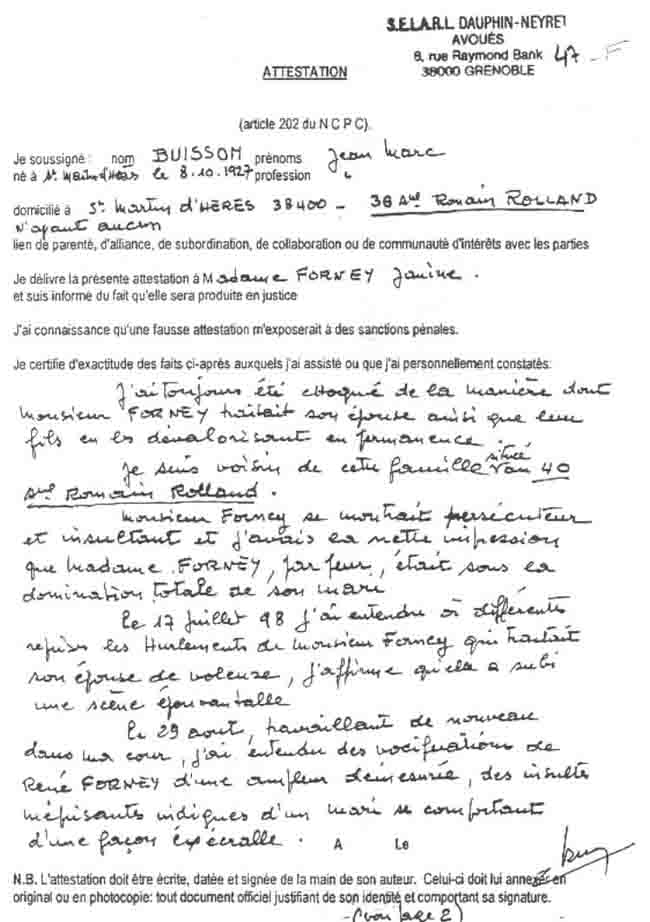 S.E.L.A.R.L. DAUPHIN-NEYRET
AVOUÉS
6, rue Raymond Bank 47-F
38000 GRENOBLE
ATTESTATION
(article 202 du N C P C).
Je soussigné : nom BUISSON prénoms Jean Marc
né à St Martin d'Hères le 8.10.1927 profession
domicilié à St Martin d'HERES 38400 - 36 Ave Romain ROLLAND
N'ayant aucun
lien de parenté, d'alliance, de subordination, de collaboration ou de communauté d'intérêts avec les parties
Je délivre la présente attestation à Madame FORNEY Janine.
et suis informé du fait qu'elle sera produite en justice
J'ai connaissance qu'une fausse attestation m'exposerait à des sanctions pénales.
Je certifie d'exactitude des faits ci-après auxquels j'ai assisté ou que j'ai personnellement constatés:
J'ai toujours été choqué de la manière dont
Monsieur FORNEY traitait son épouse ainsi que leur
fils en les dévalorisant en permanence.
Je suis voisin de cette famille située au 40
Ave Romain Rolland.
Monsieur Forney se montrait persécuteur
et insultant et j'avais la nette impression
que Madame FORNEY, par peur, était sous la
domination totale de son mari
Le 17 Juillet 98 j'ai entendu à différentes
reprises les Hurlements de Monsieur Forney qui traitait
son épouse de voleuse, j'affirme qu'elle a subi
une scène épouvantable
Le 29 aout, travaillant de nouveau
dans ma cour, j'ai entendu des vociférations de
René FORNEY d'une ampleur démesurée, des insultes
méprisantes indignes d'un mari se comportant
d'une façon exécrable. A Le
N.B. L'attestation doit être écrite, datée et signée de la main de son auteur. Celui-ci doit lui annexer en
original ou en photocopie: tout document officiel justifiant de son identité et comportant sa signature.
-(voir page 2)